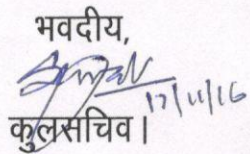 भवदीय,
17/11/16
कुलसचिव।